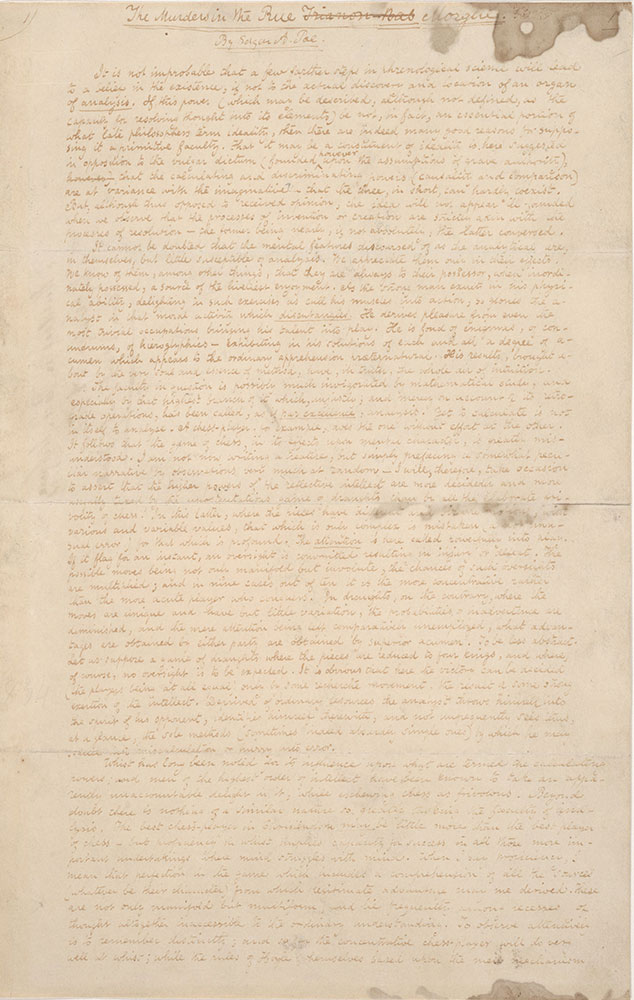 The Murders in the Rue Trianon-Bas Morgue.
By Edgar A. Poe.
It is not improbable that a few farther steps in phrenological science will lead
to a belief in the existence, if not to the actual discovery and location of an organ
of analysis. If this power (which may be described, although not defined, as the
capacity for resolving thought into its elements) be not, in fact, an essential portion of
what late philosophers term ideality, then there are indeed many good reasons for suppo-
sing it a primitive faculty. That it may be a constituent of ideality is here suggested
in opposition to the vulgar dictum (founded, however, upon the assumptions of grave authority),
that the calculating and discriminating powers (causality and comparison)
are at variance with the imaginative — that the three, in short, can hardly coexist.
But, although thus opposed to received opinion, the idea will not appear ill-founded
when we observe that the processes of invention or creation are strictly akin with the
processes of resolution — the former being nearly, if not absolutely, the latter conversed.
It cannot be doubted that the mental features discoursed of as the analytical are,
in themselves, but little susceptible of analysis. We appreciate them only in their effects.
We know of them, among other things, that they are always to their possessor, when inordi-
nately possessed, a source of the liveliest enjoyment. As the strong man exults in his physi-
cal ability, delighting in such exercises as call his muscles into action, so glories the a-
nalyst in that moral activity which disentangles. He derives pleasure from even the
most trivial occupations bringing his talent into play. He is fond of enigmas, of con-
undrums, of hieroglyphics — exhibiting in his solutions of each and all a degree of a-
cumen which appears to the ordinary apprehension preternatural. His results, brought a-
bout by the very soul and essence of method, have, in truth, the whole air of intuition.
The faculty in question is possibly much invigorated by mathematical study, and
especially by that highest branch of it which, unjustly, and merely on account of its retro-
grade operations, has been called, as if par excellence, analysis. Yet to calculate is not
in itself to analyze. A chess-player, for example, does the one without effort at the other.
It follows that the game of chess, in its effects upon mental character, is greatly mis-
understood. I am not now writing a treatise, but simply prefacing a somewhat pecu-
liar narrative by observations very much at random — I will, therefore, take occasion
to assert that the higher powers of the reflective intellect are more decidedly and more
usefully taxed by the unostentatious game of draughts than by all the elaborate fri-
volity of chess. In this latter, where the pieces have different and
various and variable values, that which is only complex is mistaken (a not unu-
sual error) for that which is profound. The attention is here called powerfully into play.
If it flag for an instant, an oversight is committed, resulting in injury or defeat. The
possible moves being not only manifold but involute, the chances of such oversights
are multiplied; and in nine cases out of ten it is the more concentrative rather
than the more acute player who conquers. In draughts, on the contrary, where the
moves are unique and have but little variation, the probabilities of inadvertence are
diminished, and the mere attention being left comparatively unemployed, what advan-
tages are obtained by either party are obtained by superior acumen. To be less abstract.
Let us suppose a game of draughts where the pieces are reduced to four kings, and where,
of course, no oversight is to be expected. It is obvious that here the victory can be decided
(the players being at all equal) only by some recherché movement, the result of some strong
exertion of the intellect. Deprived of ordinary resources, the analyst throws himself into
the spirit of his opponent, identifies himself therewith, and not unfrequently sees thus,
at a glance, the sole methods (sometimes indeed absurdly simple ones) by which he may
seduce into miscalculation or hurry into error.
Whist has long been noted for its influence upon what are termed the calculating
powers; and men of the highest order of intellect have been known to take an appa-
rently unaccountable delight in it, while eschewing chess as frivolous. Beyond
doubt there is nothing of a similar nature so greatly tasking the faculty of analy-
sis. The best chess-player in Christendom may be little more than the best player
of chess — but proficiency in whist implies capacity for success in all those more im-
portant undertakings where mind struggles with mind. When I say proficiency, I
mean that perfection in the game which includes a comprehension of all the sources
(whatever be their character) from which legitimate advantage may be derived. These
are not only manifold but multiform, and lie frequently among recesses of
thought altogether inaccessible to the ordinary understanding. To observe attentively
is to remember distinctly; and so far the concentrative chess-player will do very
well at whist; while the rules of Hoyle (themselves based upon the mere mechanism